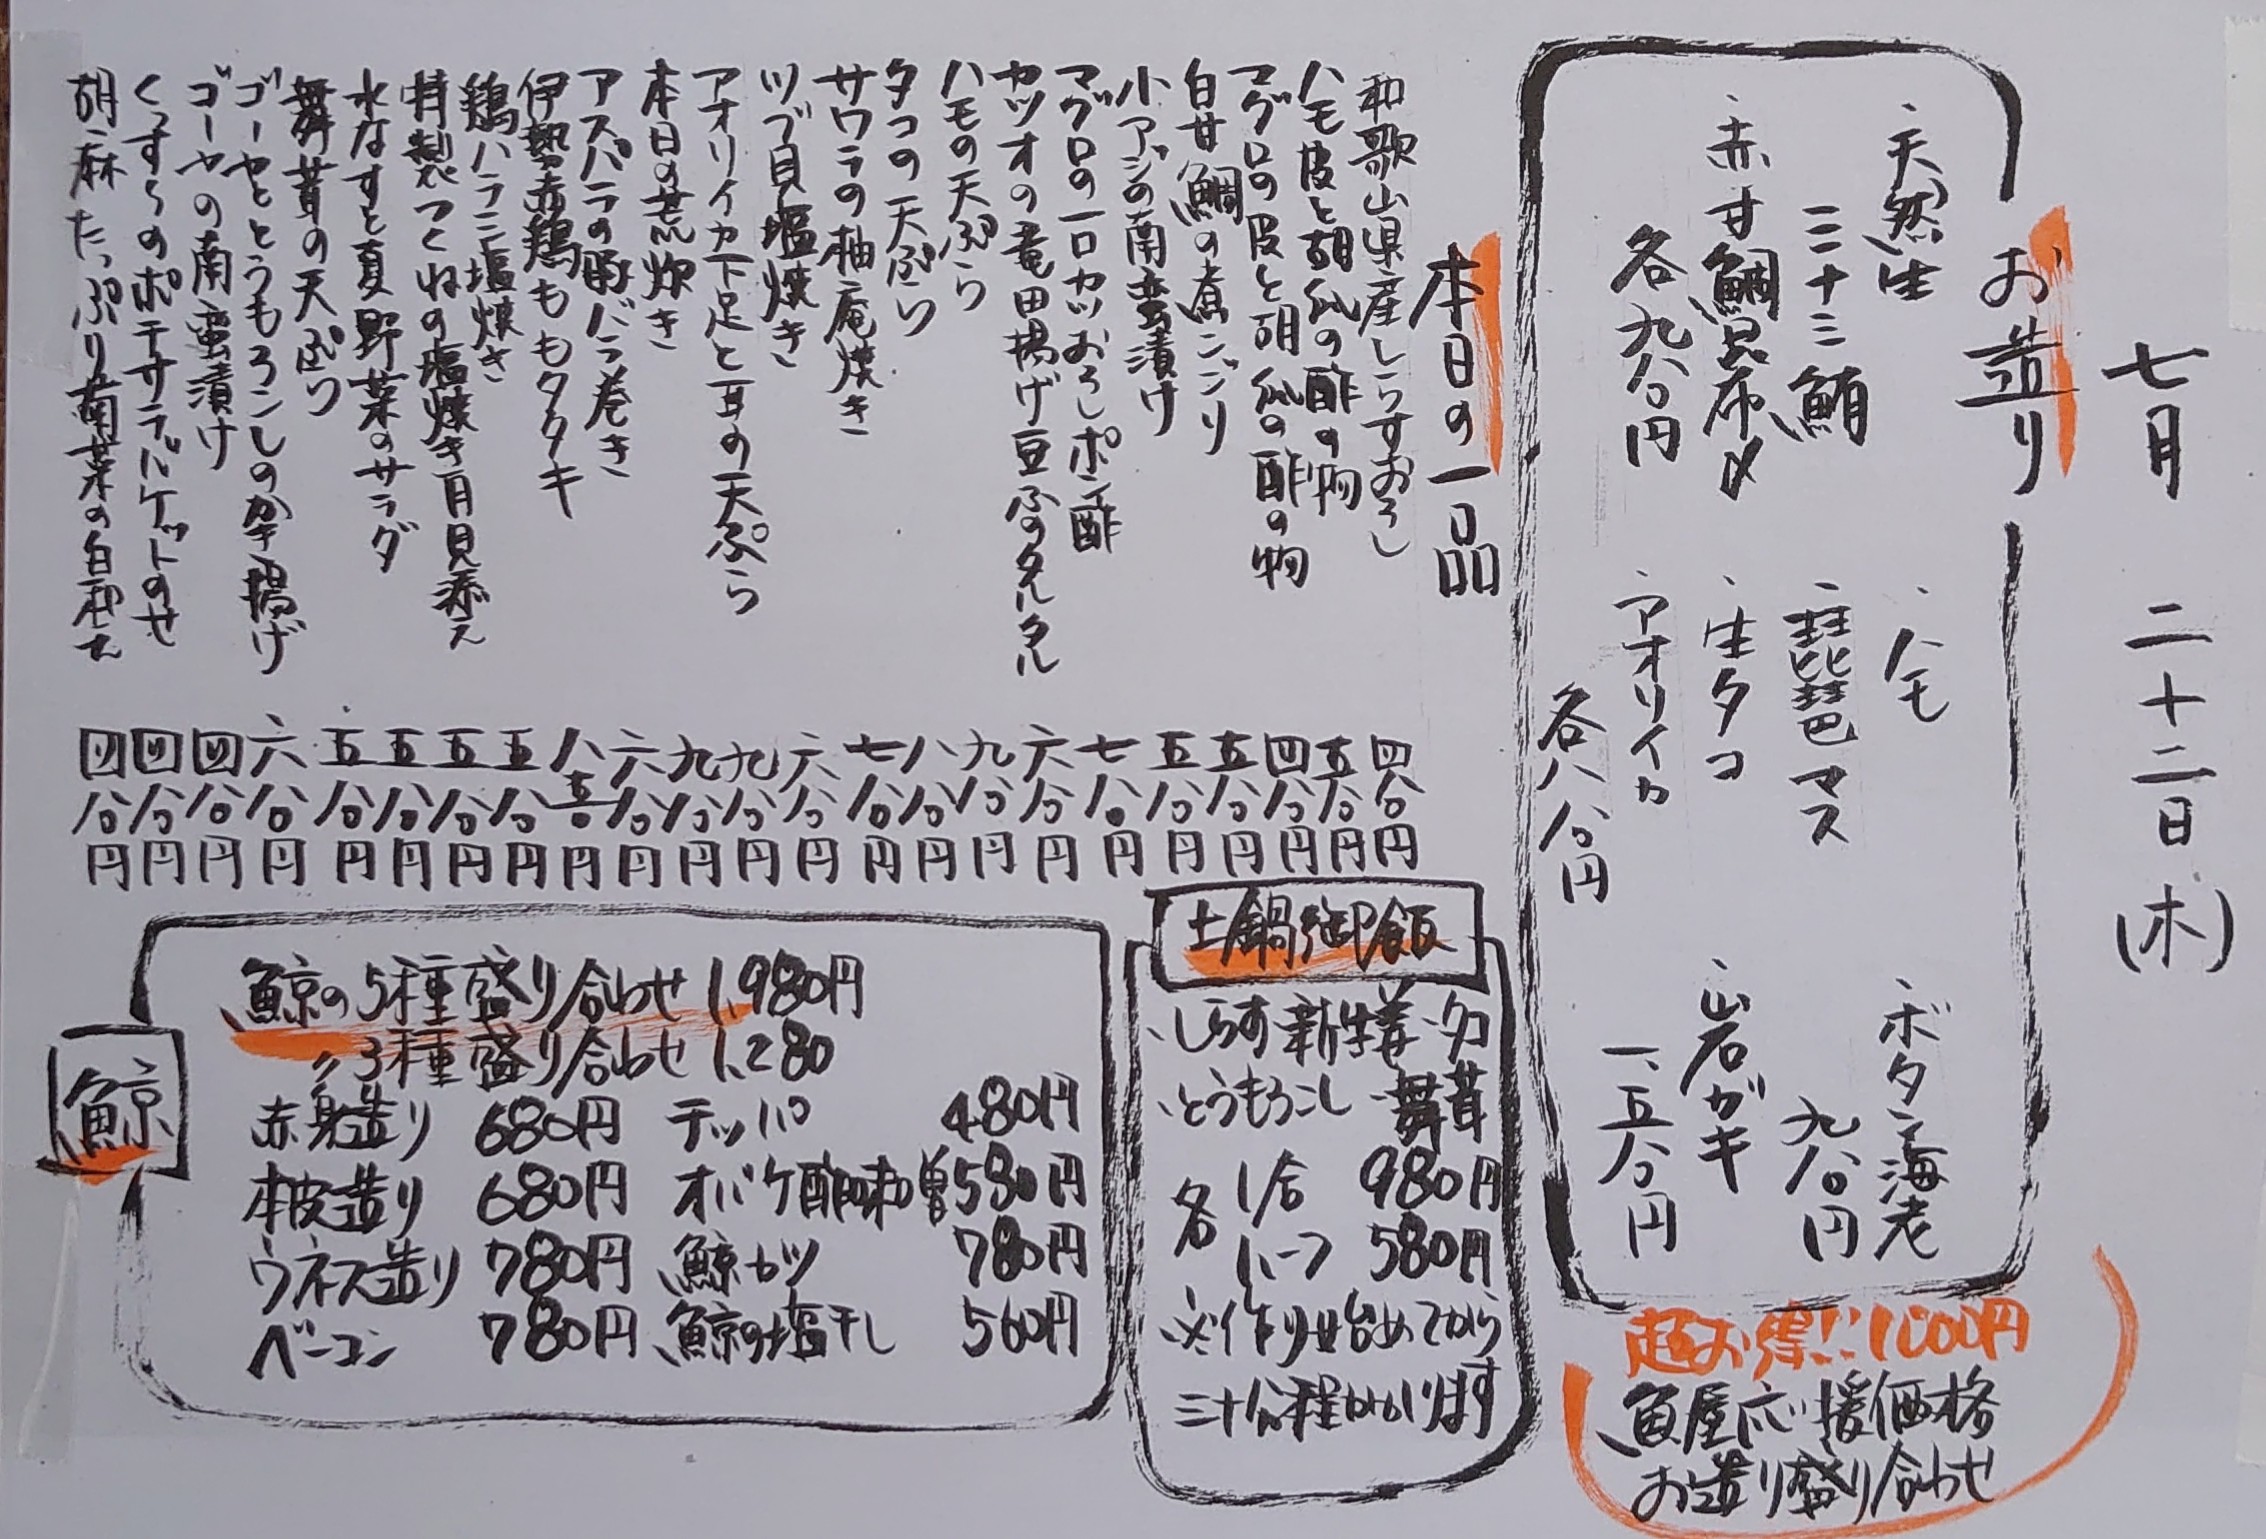 七月 二十二日(木)
お造り
・天然生
ミニ十三鮪
・赤甘鯛昆布〆
各九八〇円
・ハモ
・琵琶マス
・生タコ
・アオリイカ
各八八〇円
・ボタン海老
九八〇円
・岩ガキ
一、五八〇円
超お得!!1000円
魚屋応援価格
お造り盛り合わせ
本日の一品
和歌山県産しらすおろし 四八〇円
ハモ皮と胡瓜の酢の物 五八〇円
マグロの皮と胡瓜の酢の物 四八〇円
白甘鯛の煮こごり 五八〇円
小アジの南蛮漬け 五八〇円
マグロの一口カツおろしポン酢 七八〇円
カツオの竜田揚げ豆ふのタルタル 六八〇円
ハモの天ぷら 九八〇円
タコの天ぷら 八八〇円
サワラの柚庵焼き 七八〇円
ツブ貝塩焼き 六八〇円
アオリイカ下足と耳の天ぷら 九八〇円
本日の荒炊き 九八〇円
アスパラの豚バラ巻き 六八〇円
伊勢赤鶏ももタタキ 八五〇円
鶏ハラミ塩焼き 五八〇円
特製つくねの塩焼き月見添え 五八〇円
水なすと夏野菜のサラダ 五八〇円
舞茸の天ぷら 五八〇円
ゴーヤととうもろこしのかき揚げ 六八〇円
ゴーヤの南蛮漬け 四八〇円
くっすんのポテサラバケットのせ 四八〇円
胡麻たっぷり菊菜の白和え 四八〇円
土鍋御飯
・しらす・新生姜・タコ
・とうもろこし・舞茸
各 1合 980円
ハーフ 580円
※作り始めてから
三十分程かかります
鯨
鯨の5種盛り合わせ 1,980円
〃3種盛り合わせ 1,280
赤身造り 680円 テッパ 480円
本皮造り 680円 オバケ酢味噌 580円
ウネス造り 780円 鯨カツ 780円
ベーコン 780円 鯨の塩干し 560円